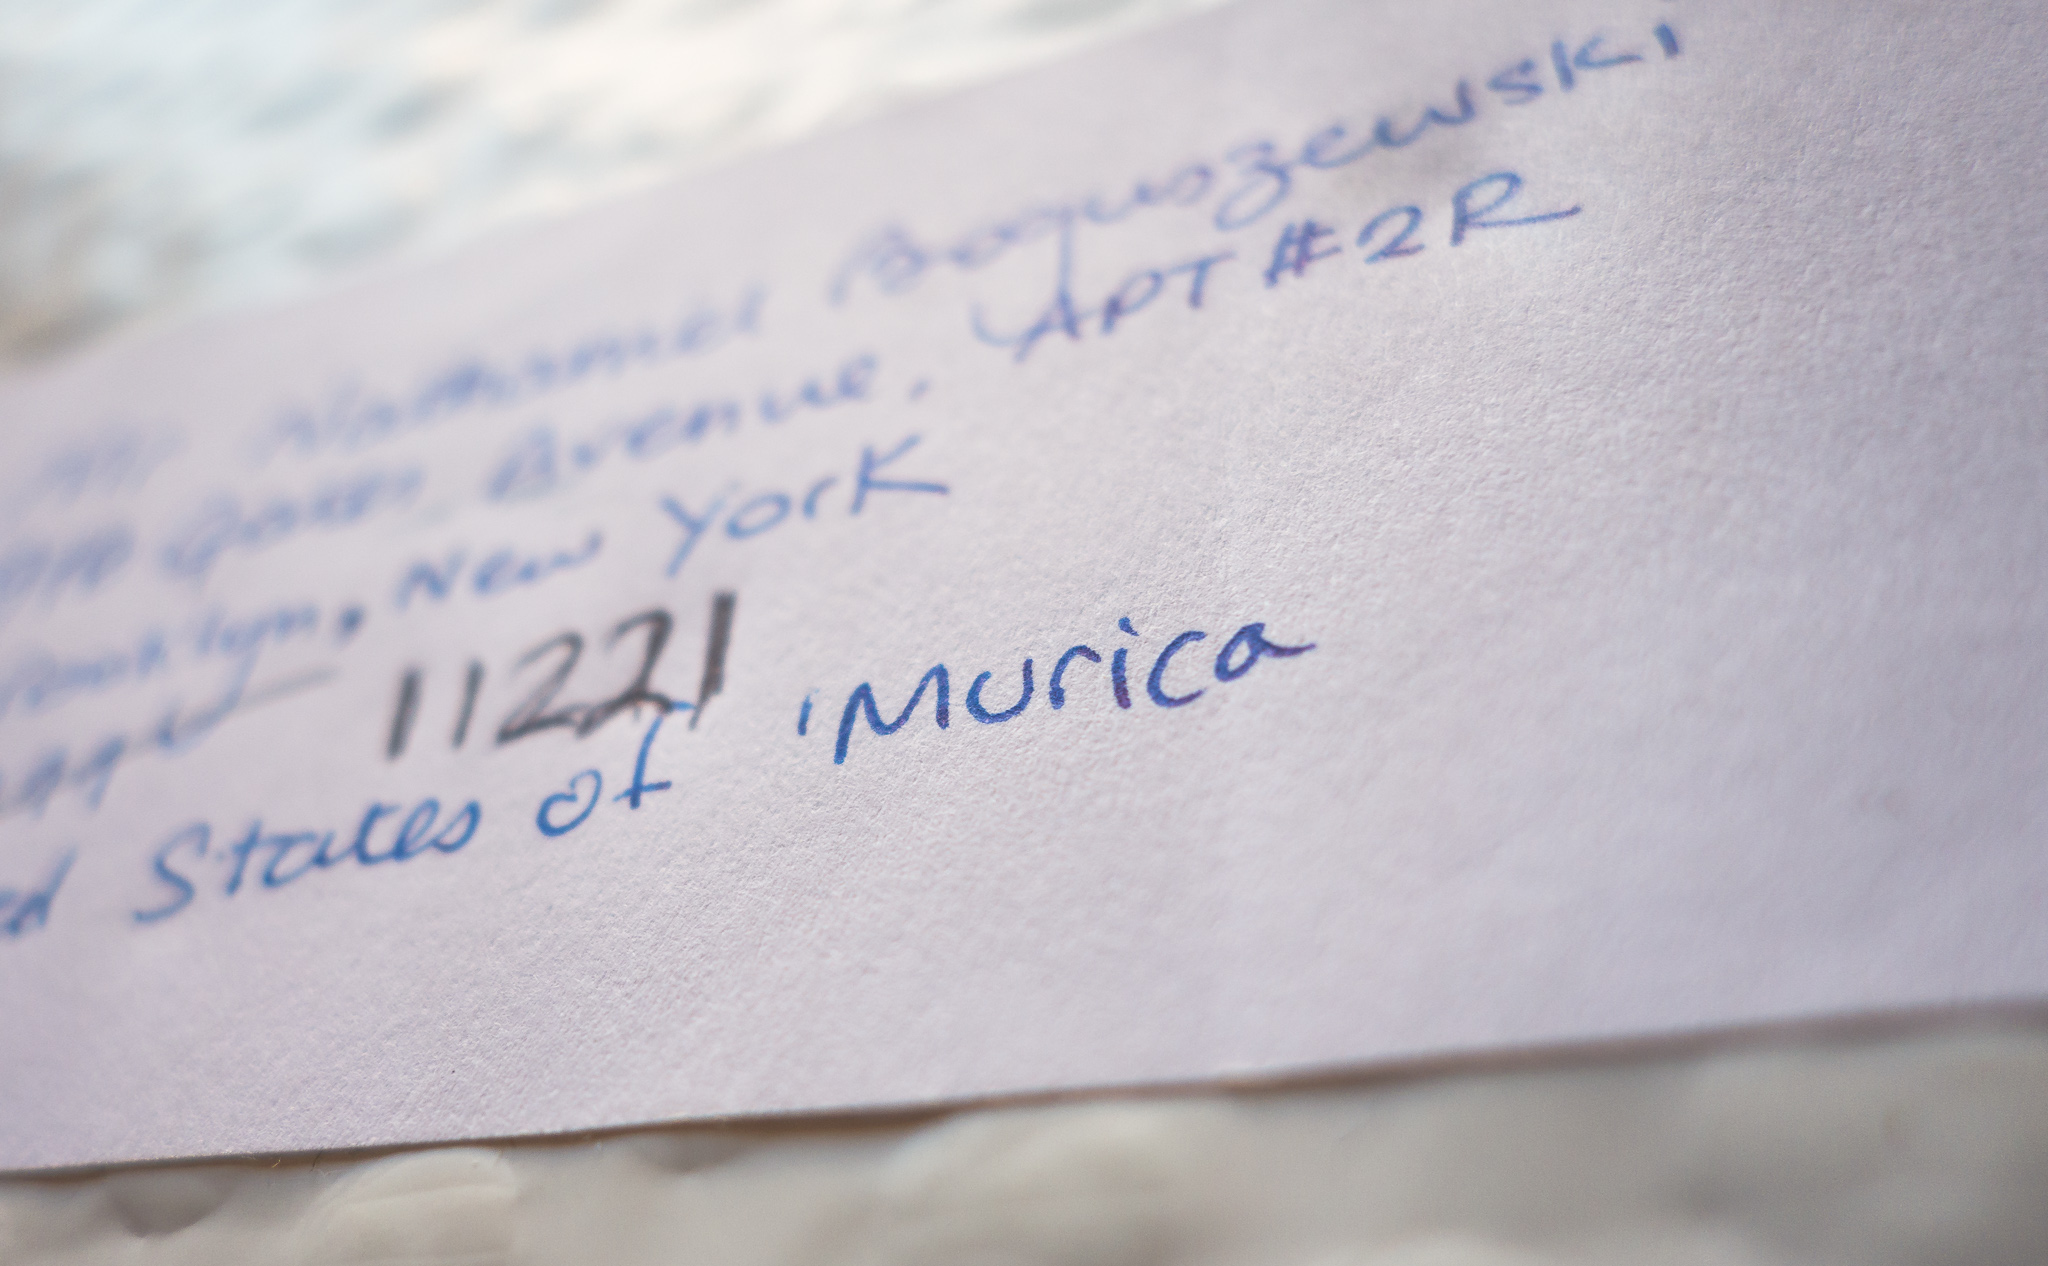 Nathaniel Boguszewski
Gates Avenue. APT #2R
Brooklyn, New York
11221
States of 'Murica